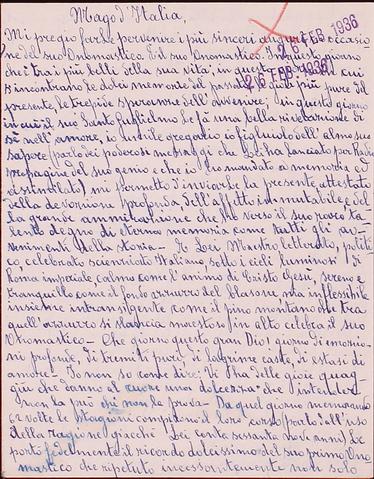 Mago d'Italia,
Mi pregio farle pervenire i più sinceri auguri in occasio
26 FEB 1936
ne del suo Onomastico. È il suo Onomastico. In questo giorno
che è trai più belli della sua vita, in questo giorno in cui
26 FEB 1936
s'incontrano le dolci memorie del passato, le gioie più pure del
presente, le trepide sperovvre dell'avvenire; in questo giorno
in cui il suo Santo Guglielmo fa una bella rivelazione di
sè nell'amore, io umile oregalio e figliuolo dell'almo suo
sapere (parlo dei poderosi messaggi che Lei ha lanciato per Radio
propagine del suo genio e che io ho mandato a memoria ed
assimilato) mi permetto d'inviarle la presente, attestato
della devozione profonda, dell'affetto immutabile e del
la grande ammirazione che ho verso il suo raro ta
lento degno di eterna memoria come tutti gli av
venimenti della storia. — Lei Maestro, letterato, politi
co, celebrato scienziato Italiano, sotto i cieli luminosi di
Roma imperiale, calmo come l'animo di Cristo Gesù, sereno e
tranquillo come il fondo azzurro del blasone, ma inflessibile
insieme intransigente come il pino montano che tra
quell'azzurro si slancia maestoso in alto celebra il suo
Onomastico — Che giorno questo gran Dio! giorno di emozio
ni profonde, di tremiti puri, di lagrime caste, di estasi di
amore — Io non so come dire: Vi ha delle gioie quag
giù che danno al cuore una dolcezza "che intender
non la può chi non la prova — Da quel giorno memorando
62 volte le stagioni compirono il loro corso (parlo dell'uso
della ragione giacchè Lei conta sessanta nove anni) Le
portò fedelmente il ricordo dolcissimo del suo primo Ono
mastico che ripetuto incessantemente non solo